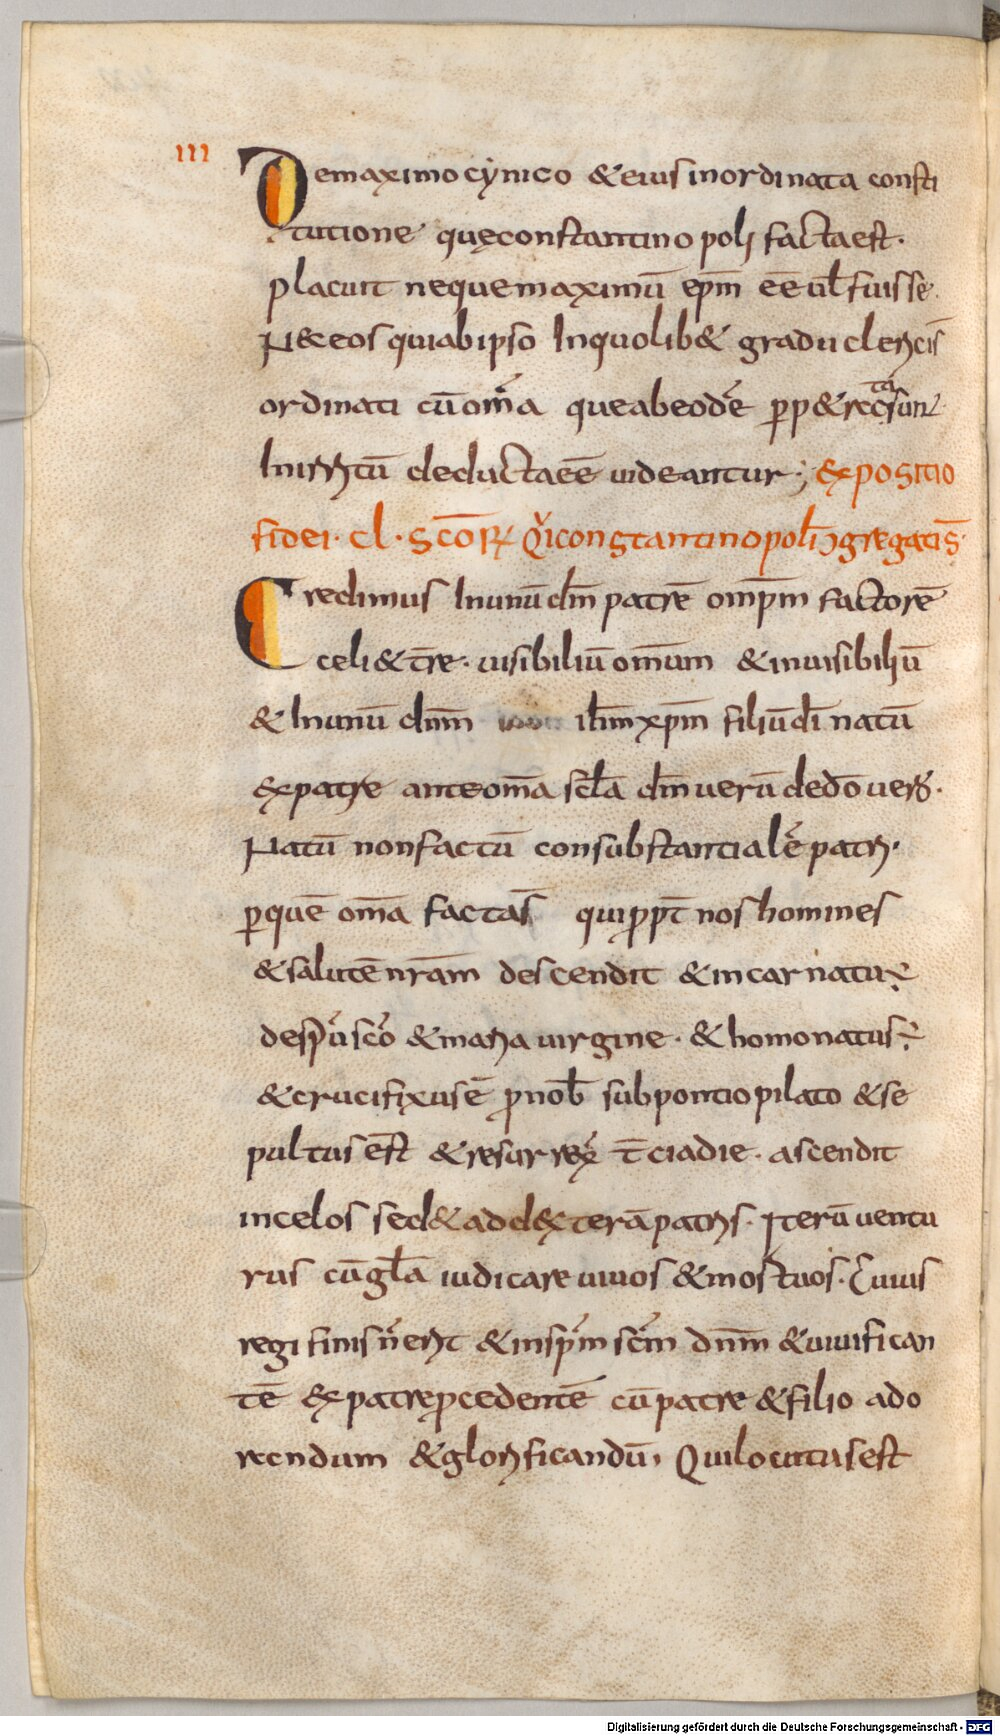 III
De maximo cynico & eius inordinata consti
tutione quę constantinopoli facta est.
Placuit neque maximū epm̄ eē ul̄ fuisse.
Nec eos qui ab ipso Inquolib& gradu clericis̄
ordinati cū om̄a que ab eodē ꝑp&rata sunt
Inirritū deducta eē uideantur; Expositio
fidei. cl. sc̄oꝝ qui constantinopoli ɔgregatis̄.
Credimus Inunū dm̄ patrē omp̄m factorē
celi & tr̄e. uisibiliū om̄ium & inuisibiliū
& Inunū dnm̄ ih̄m xp̄m filiū dī natū
ex patre ante om̄a scl̄a dm̄ uerū de dō uero.
Natū non factū consubstantialē patri.
ꝑquē om̄a facta s̄ qui ꝓpt̄ nos homines
& salutē nr̄am descendit & incarnatus ÷
de spū scō & maria uirgine. & homo natus ÷
& crucifixus ē ꝓ nob̄ sub pontio pilato & se
pultus est̄ & resurrex̄ t̄cia die. ascendit
in celos sed& ad dexterā patris. Iterū uentu
rus cū gl̄a iudicare uiuos & mortuos. Cuius
regi finis n̄ erit & in sp̄m scm̄ dnm̄ & uiuifican
tē ex patre ꝓcedentē cū patre & filio ado
rendum & glorificandū, Qui locutus est
Digitalisierung gefördert durch die Deutsche Forschungsgemeinschaft - DFG